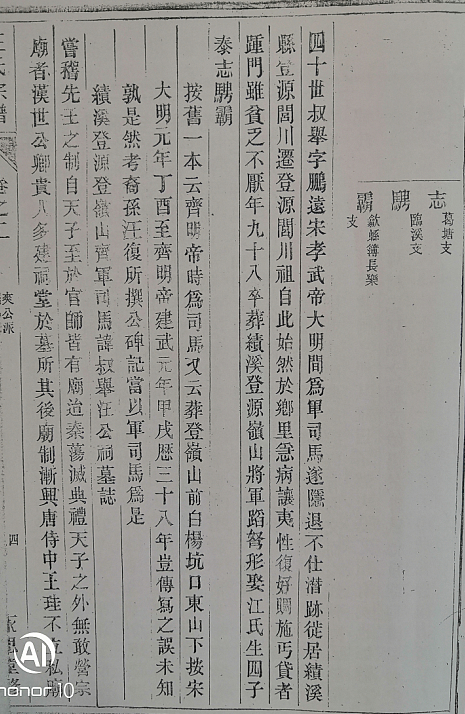 志
葛塘支
騁
臨溪支
霸
歙縣簿長樂
支
四十世叔舉字鵬遠宋孝武帝大明間爲軍司馬遂隱退不仕潛跡徙居績溪
縣登源閭川遷登源閭川祖自此始然於鄉里急病讓夷性復好賙施丐貸者
踵門雖貧乏不厭年九十八卒葬績溪登源嶺山將軍蹈弩形娶江氏生四子
泰志騁霸
按舊一本云齊明帝時爲司馬又云葬登嶺山前白楊坑口東山下按宋
大明元年丁酉至齊明帝建武元年甲戌歷三十八年豈傳寫之誤未知
孰是然考裔孫汪復所撰公碑記當以軍司馬爲是
績溪登源登嶺山齊軍司馬諱叔舉汪公祠墓誌
嘗稽先王之制自天子至於官師皆有廟迨秦蕩滅典禮天子之外無敢營宗
廟者漢世公卿貴人多建祠堂於墓所其後廟制漸興唐侍中王珪不立私廟
汪氏宗譜
卷之二
爽公派
四
AI
honor 10